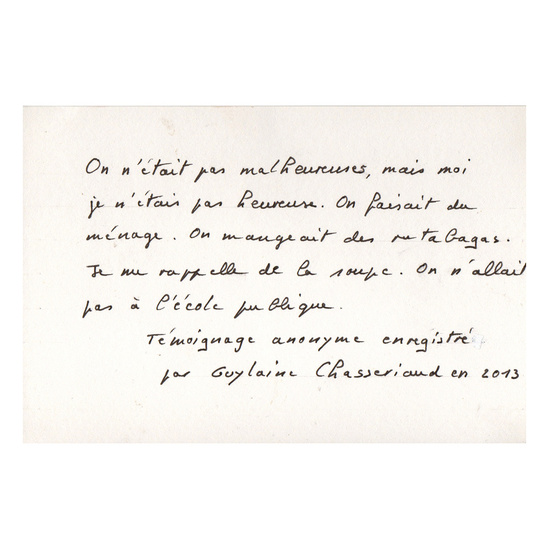 On n'était pas malheureuses, mais moi
je n'étais pas heureuse. On faisait du
ménage. On mangeait des rutabagas.
Je me rappelle de la soupe. On n'allait
pas à l'école publique.
Témoignage anonyme enregistré
par Guylaine Chasseriaud en 2013